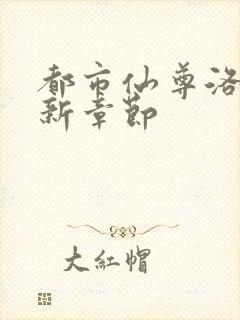 都市仙尊洛
新章節
大紅帽